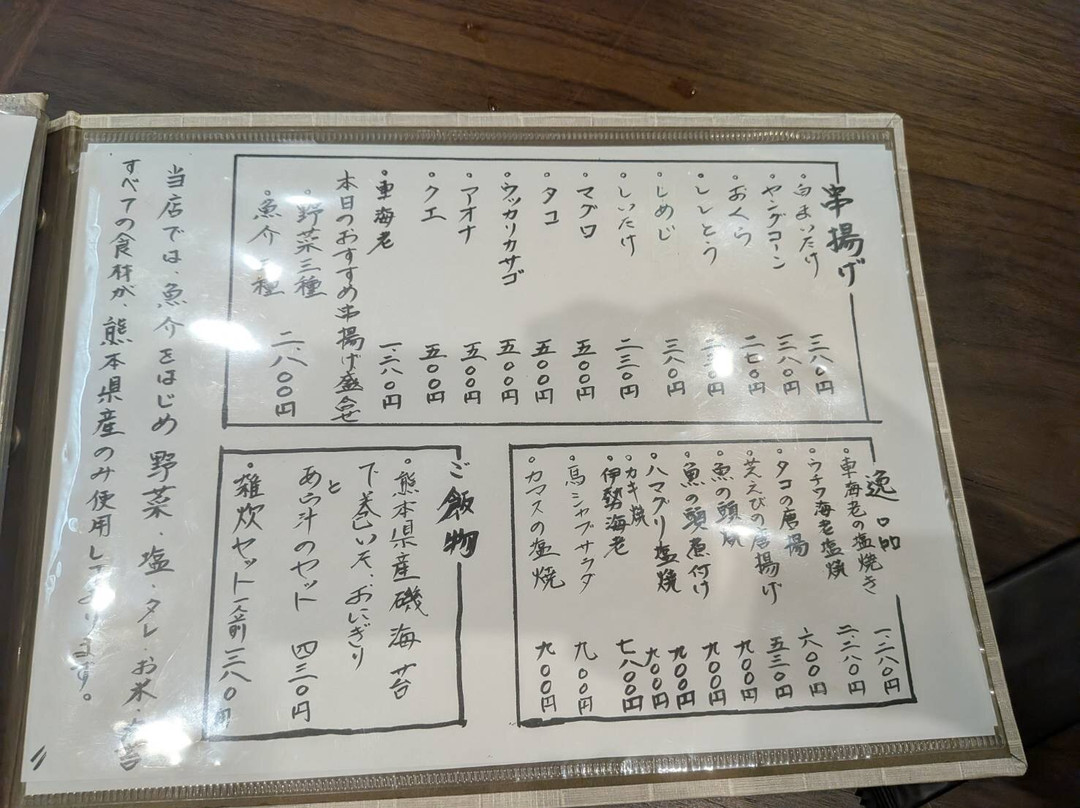 串揚げ
・白まいたけ 三八〇円
・ヤングコーン 三八〇円
・おくら 二七〇円
・ししとう 二三〇円
・しめじ 三八〇円
・しいたけ 二三〇円
・マグロ 五〇〇円
・タコ 五〇〇円
・ウッカリカサゴ 五〇〇円
・アオナ 五〇〇円
・クエ 五〇〇円
・車海老 一.二八〇円
本日のおすすめ串揚げ盛合せ
・野菜三種
・魚介 種 二.八〇〇円
逸品
・車海老の塩焼き 一.二八〇円
・ウチワ海老塩焼 二.二八〇円
・タコの唐揚 六〇〇円
・芝えびの唐揚げ 五三〇円
・魚の頭焼 九〇〇円
・魚の頭煮付け 九〇〇円
・ハマグリ塩焼 九〇〇円
・カキ焼 九〇〇円
・伊勢海老 七八〇〇円
・馬シャブサラダ 九〇〇円
・カマスの塩焼 九〇〇円
ご飯物
・熊本県産磯海苔
下巻いそ、おにぎり
と
あら汁のセット 四三〇円
・雑炊セット一人前 三八〇円
当店では、魚介をはじめ 野菜、塩・タレ・お米
すべての食材が、熊本県産のみ使用しております。